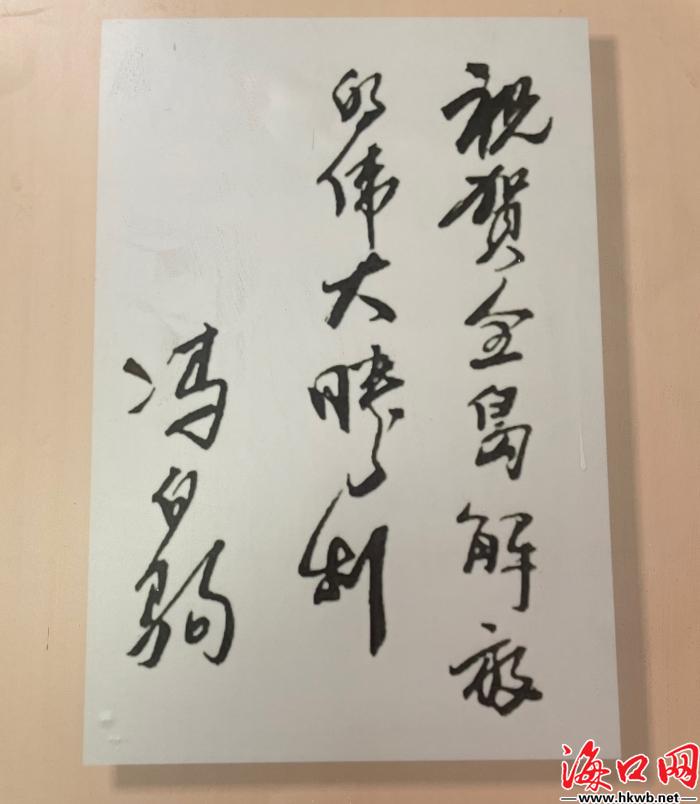 祝贺全岛解放
的伟大勝利
冯白驹
海口网
www.hkwb.net